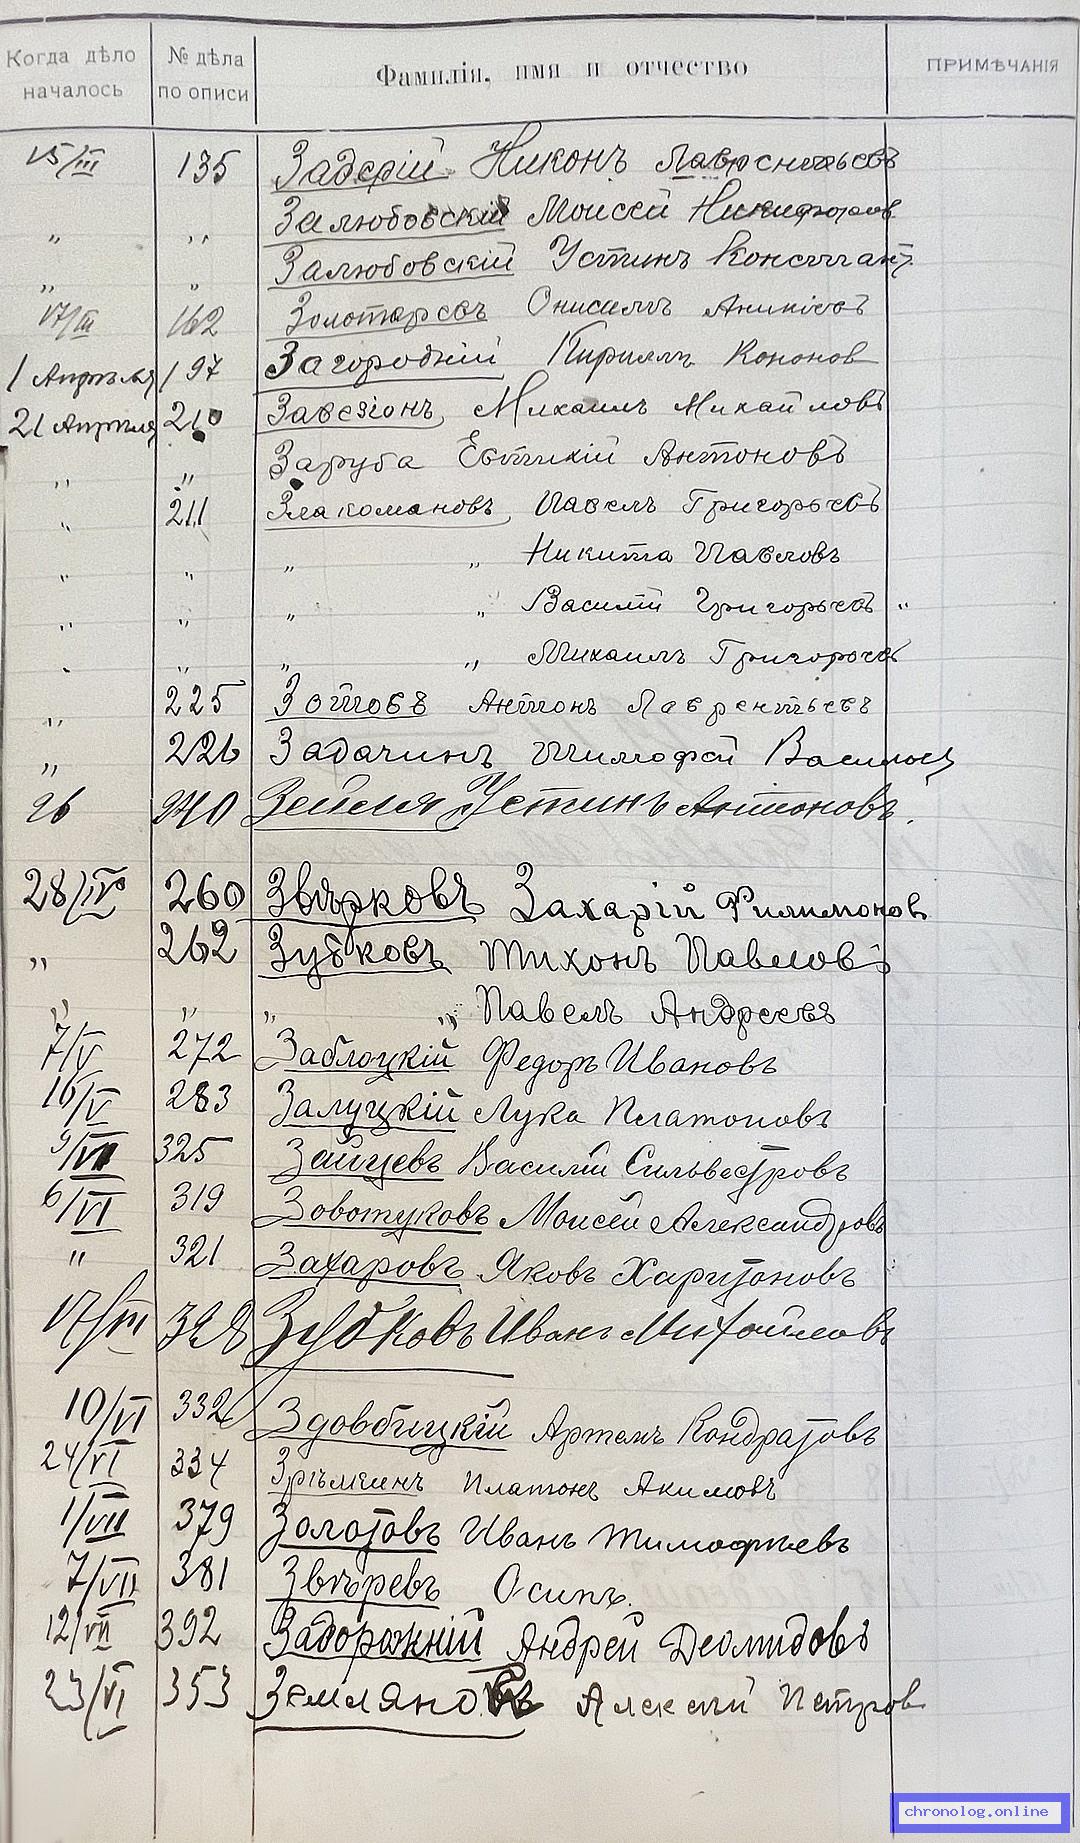 Когда дѣло началось № дѣла по описи Фамилія, имя и отчество ПРИМѢЧАНІЯ
15/III 135 Задерій Никонъ Лаврентьевъ
" " Залюбовскій Моисей Никифоров
" " Залюбовскій Устинъ Констант.
17/III 162 Золотаревъ Онисимъ Аникіевъ
1 Апрѣля 197 Загородній Кириллъ Кононов
21 Апрѣля 210 Завезіонъ Михаилъ Михайловъ
" " Заруба Евтихій Антоновъ
" 211 Злакомановъ Павелъ Григорьевъ
" " " " Никита Павловъ
" " " " Василій Григорьевъ "
" " " " Михаилъ Григорьев
" 225 Зотовъ Антонъ Лаврентьевъ
" 226 Задачинъ Тимофей Васильев
26 240 Устинъ Антоновъ.
28/IV 260 Звѣрковъ Захарій Филимонов
" 262 Зубковъ Тихонъ Павловъ
" " " " Павелъ Андреевъ
7/V 272 Заблоцкій Федоръ Ивановъ
16/V 283 Залуцкій Лука Платоновъ
9/VII 325 Зайцевъ Василій Сильвестровъ
6/VI 319 Зовотуковъ Моисей Александровъ
" 321 Захаровъ Яковъ Харитоновъ
17/III 328 Зубковъ Иванъ Михайловъ
10/VI 332 Здовбицкій Артемъ Кондратовъ
24/VI 334 Платонъ Акимовъ
1/VII 379 Золотовъ Иванъ Тимофѣевъ
7/VII 381 Звѣревъ Осипъ.
12/VII 392 Задорожній Андрей Деомидовъ
23/VI 353 Земляновъ Алексѣй Петров
chronolog.online